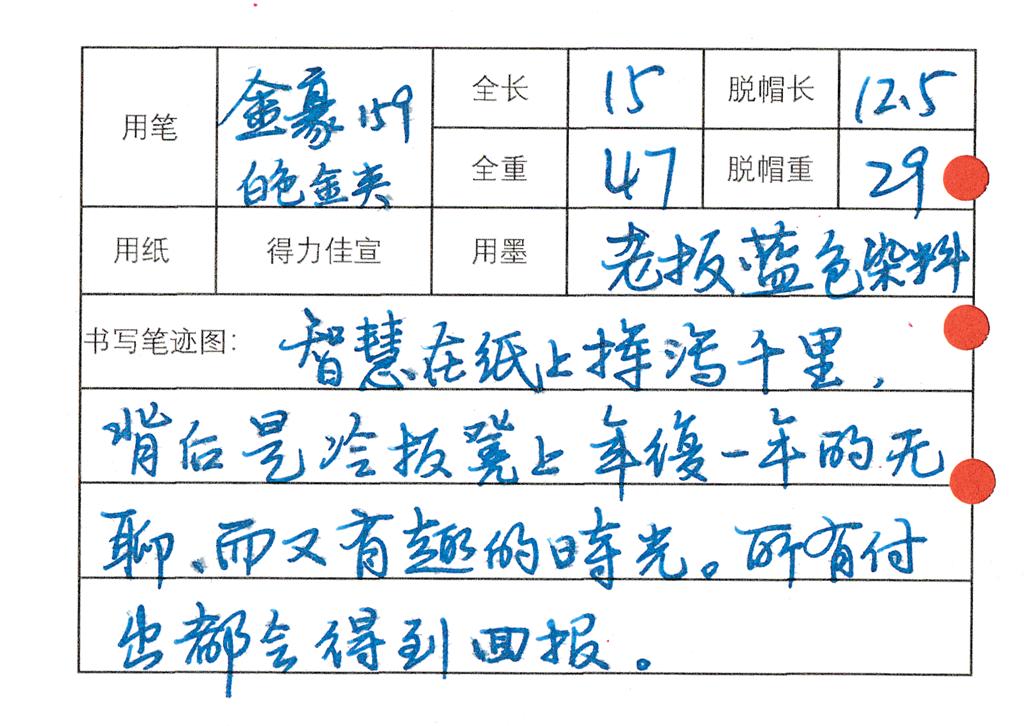 用笔 金豪159 全长 15 脱帽长 12.5
白色金夹 全重 47 脱帽重 29
用纸 得力佳宣 用墨 老板蓝色染料
书写笔迹图: 智慧在纸上挥泻千里,
背后是冷板凳上年復一年的无
聊、而又有趣的時光。所有付
出都会得到回报。